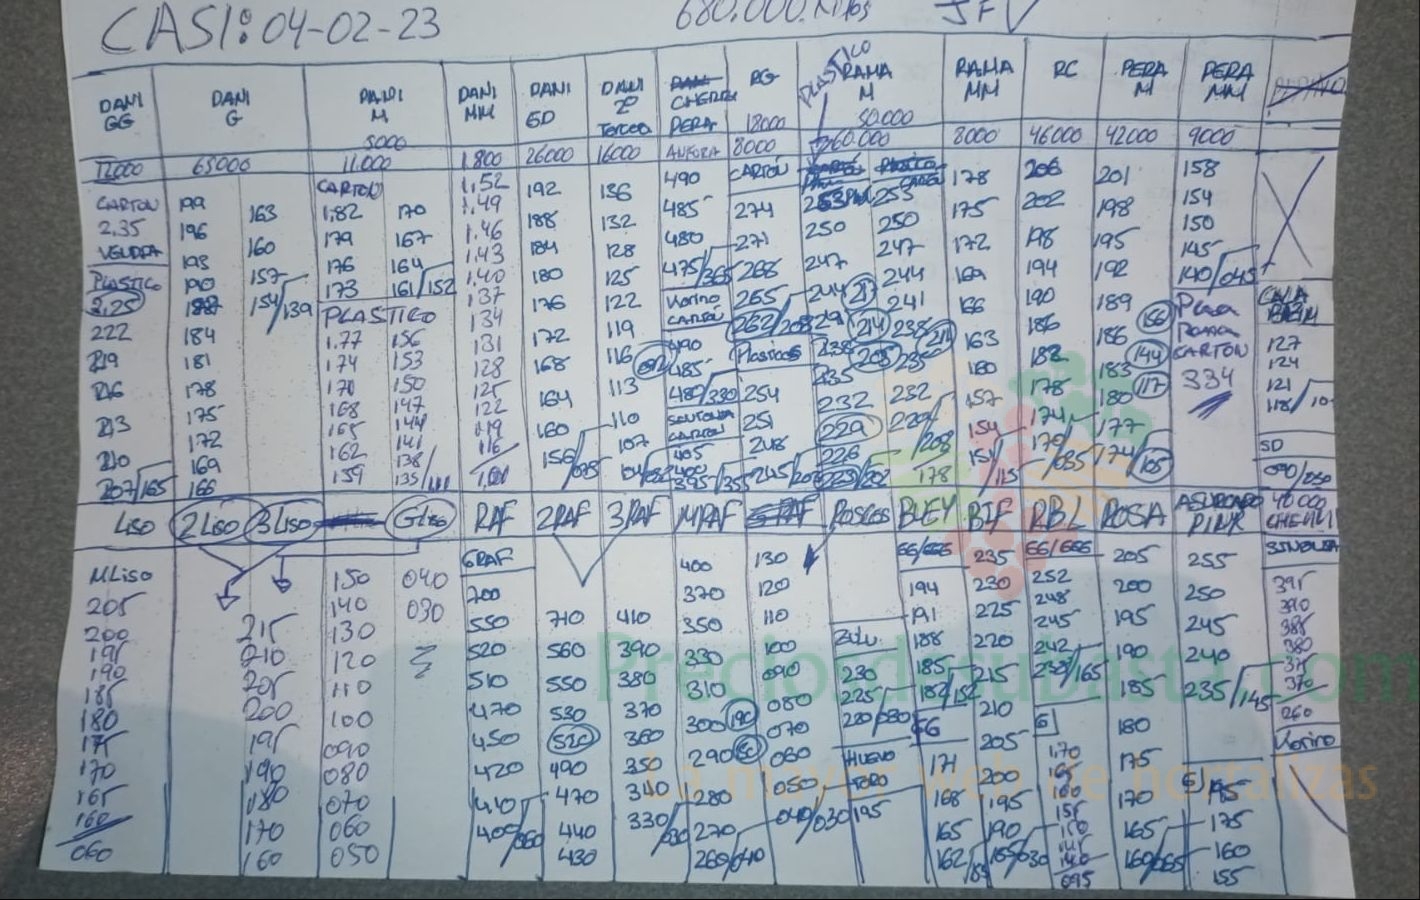 CASI: 04-02-23
680.000 Kilos JFV
DANI GG
DANI G
DANI M
DANI MM
DANI GD
DANI 2º Tercera
CHERRY PERA
RG
PLASTICO
RAMA M
RAMA MM
RC
PERA M
PERA MM
5000
18000
30.000
65000
11.000
1.800
26000
16000
8000
260.000
8000
46000
42000
9000
CARTON
2,35
PLASTICO
2,25
222
219
216
213
210
207/165
199
196
193
190
187
184
181
178
175
172
169
166
163
160
157
154/139
CARTON
1,82
179
176
173
170
167
164
161/152
PLASTICO
1,77
174
170
168
165
162
159
156
153
150
147
144
141
138
135
1,52
1,49
1,46
1,43
1,40
137
134
131
128
125
122
119
116
192
188
184
180
176
172
168
164
160
156
136
132
128
125
122
119
116
113
110
107
490
485
480
475/365
CARTON
490
485
480/330
CARTON
405
400
395/355
CARTON
274
271
268
265
262/208
Plasticos
254
251
248
250
247
244
238
235
232
229
226
255
250
247
244
241
238
235
232
229/208
178
214
205
178
175
172
169
166
163
160
157
154
151/115
206
202
198
194
190
186
182
178
174
170/085
201
198
195
192
189
186
183
180
177
174
156
144
117
165
158
154
150
145
140/045
CARTON
334
127
124
121
118
SD
LISO
2 LISO
3 LISO
G Liso
RAF
2RAF
3RAF
MRAF
ROSCOS
BUEY
BIF
RBL
ROSA
ASURCADO PINK
40000
CHERRY
M.Liso
205
200
195
190
185
180
175
170
165
160
060
215
210
205
200
195
190
180
170
160
150
140
130
120
110
100
090
080
070
060
050
040
030
GRAF
700
550
520
510
470
450
420
410
400/360
710
560
550
530
520
490
470
440
430
410
390
380
370
360
350
340
330/030
400
370
350
330
310
300
290
280
270
260/040
130
120
110
100
090
080
070
060
050
040/030
ZULU
230
225
220/030
HUEVO TORO
195
66/666
194
191
188
185
182/152
GG
171
168
165
162
235
230
225
220
215
210
205
200
195
190
185/030
66/666
252
248
245
242
239/165
G
1,70
165
160
155
150
145
140
095
205
200
195
190
185
180
175
170
165
160/065
255
250
245
240
235/145
G
195
175
160
155
395
390
385
380
375
370
260
Korino
Preciosdesubasta.com
La mayor web de hortalizas